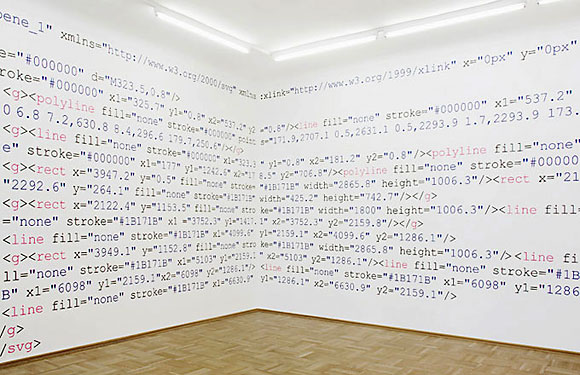 bene_1" xmlns="http://www.w3.org/2000/svg" xmlns:xlink="http://www.w3.org/1999/xlink" x="0px" y="0px"
stroke="#000000" d="M323.5,0.8"/>
stroke="#000000" x1="325.7" y1="0.8" x2="537.2" y2="0.8"/><line fill="none" stroke="#000000" x1="537.2"
<g><polyline fill="none" stroke="#000000" points="171.9,2707.1 0.5,2631.1 0.5,2293.9 1.7,2293.9 173.
0 6.8 7.2,630.8 8.4,296.6 179.7,250.6"/></g>
<g><line fill="none" stroke="#000000" x1="323.3" y1="0.8" x2="181.2" y2="0.8"/><polyline fill="none"
e" stroke="#000000" x1="177" y1="1242.8" x2="178.5" y2="706.8"/><polyline fill="none" stroke="#00000
<g><rect x="3947.2" y="0.5" fill="none" stroke="#1B171B" width="2865.8" height="1006.3"/><rect x="21
"2292.6" y="264.1" fill="none" stroke="#1B171B" width="425.2" height="742.7"/></g>
<g><rect x="2122.4" y="1153.5" fill="none" stroke="#1B171B" width="1800" height="1006.3"/><line fill
="none" stroke="#1B171B" x1="3752.3" y1="1437.1" x2="3752.3" y2="2159.8"/></g>
<line fill="none" stroke="#1B171B" x1="4099.6" y1="2159.1" x2="4099.6" y2="1286.1"/>
<g><rect x="3949.1" y="1152.8" fill="none" stroke="#1B171B" width="2865.8" height="1006.3"/><line fi
ll="none" stroke="#1B171B" x1="5103" y1="2159.1" x2="5103" y2="1286.1"/><line fill="none" stroke="#1
B" x1="6098" y1="2159.1" x2="6098" y2="1286.1"/><line fill="none" stroke="#1B171B" x1="6098" y1="1286
<line fill="none" stroke="#1B171B" x1="6630.9" y1="1286.1" x2="6630.9" y2="2159.1"/>
/g>
/svg>